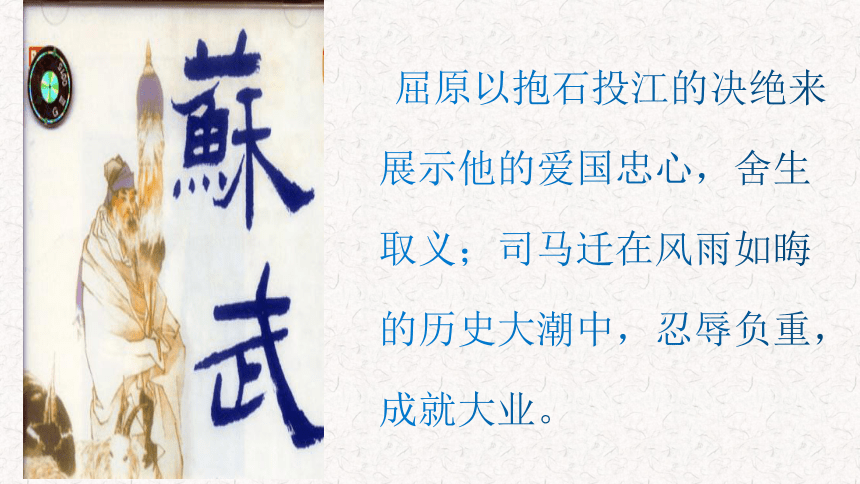 蘇武
屈原以抱石投江的决绝来
展示他的爱国忠心，舍生
取义；司马迁在风雨如晦
的历史大潮中，忍辱负重，
成就大业。